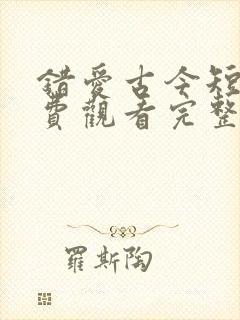 錯愛古今短
費觀看完整
羅斯陶